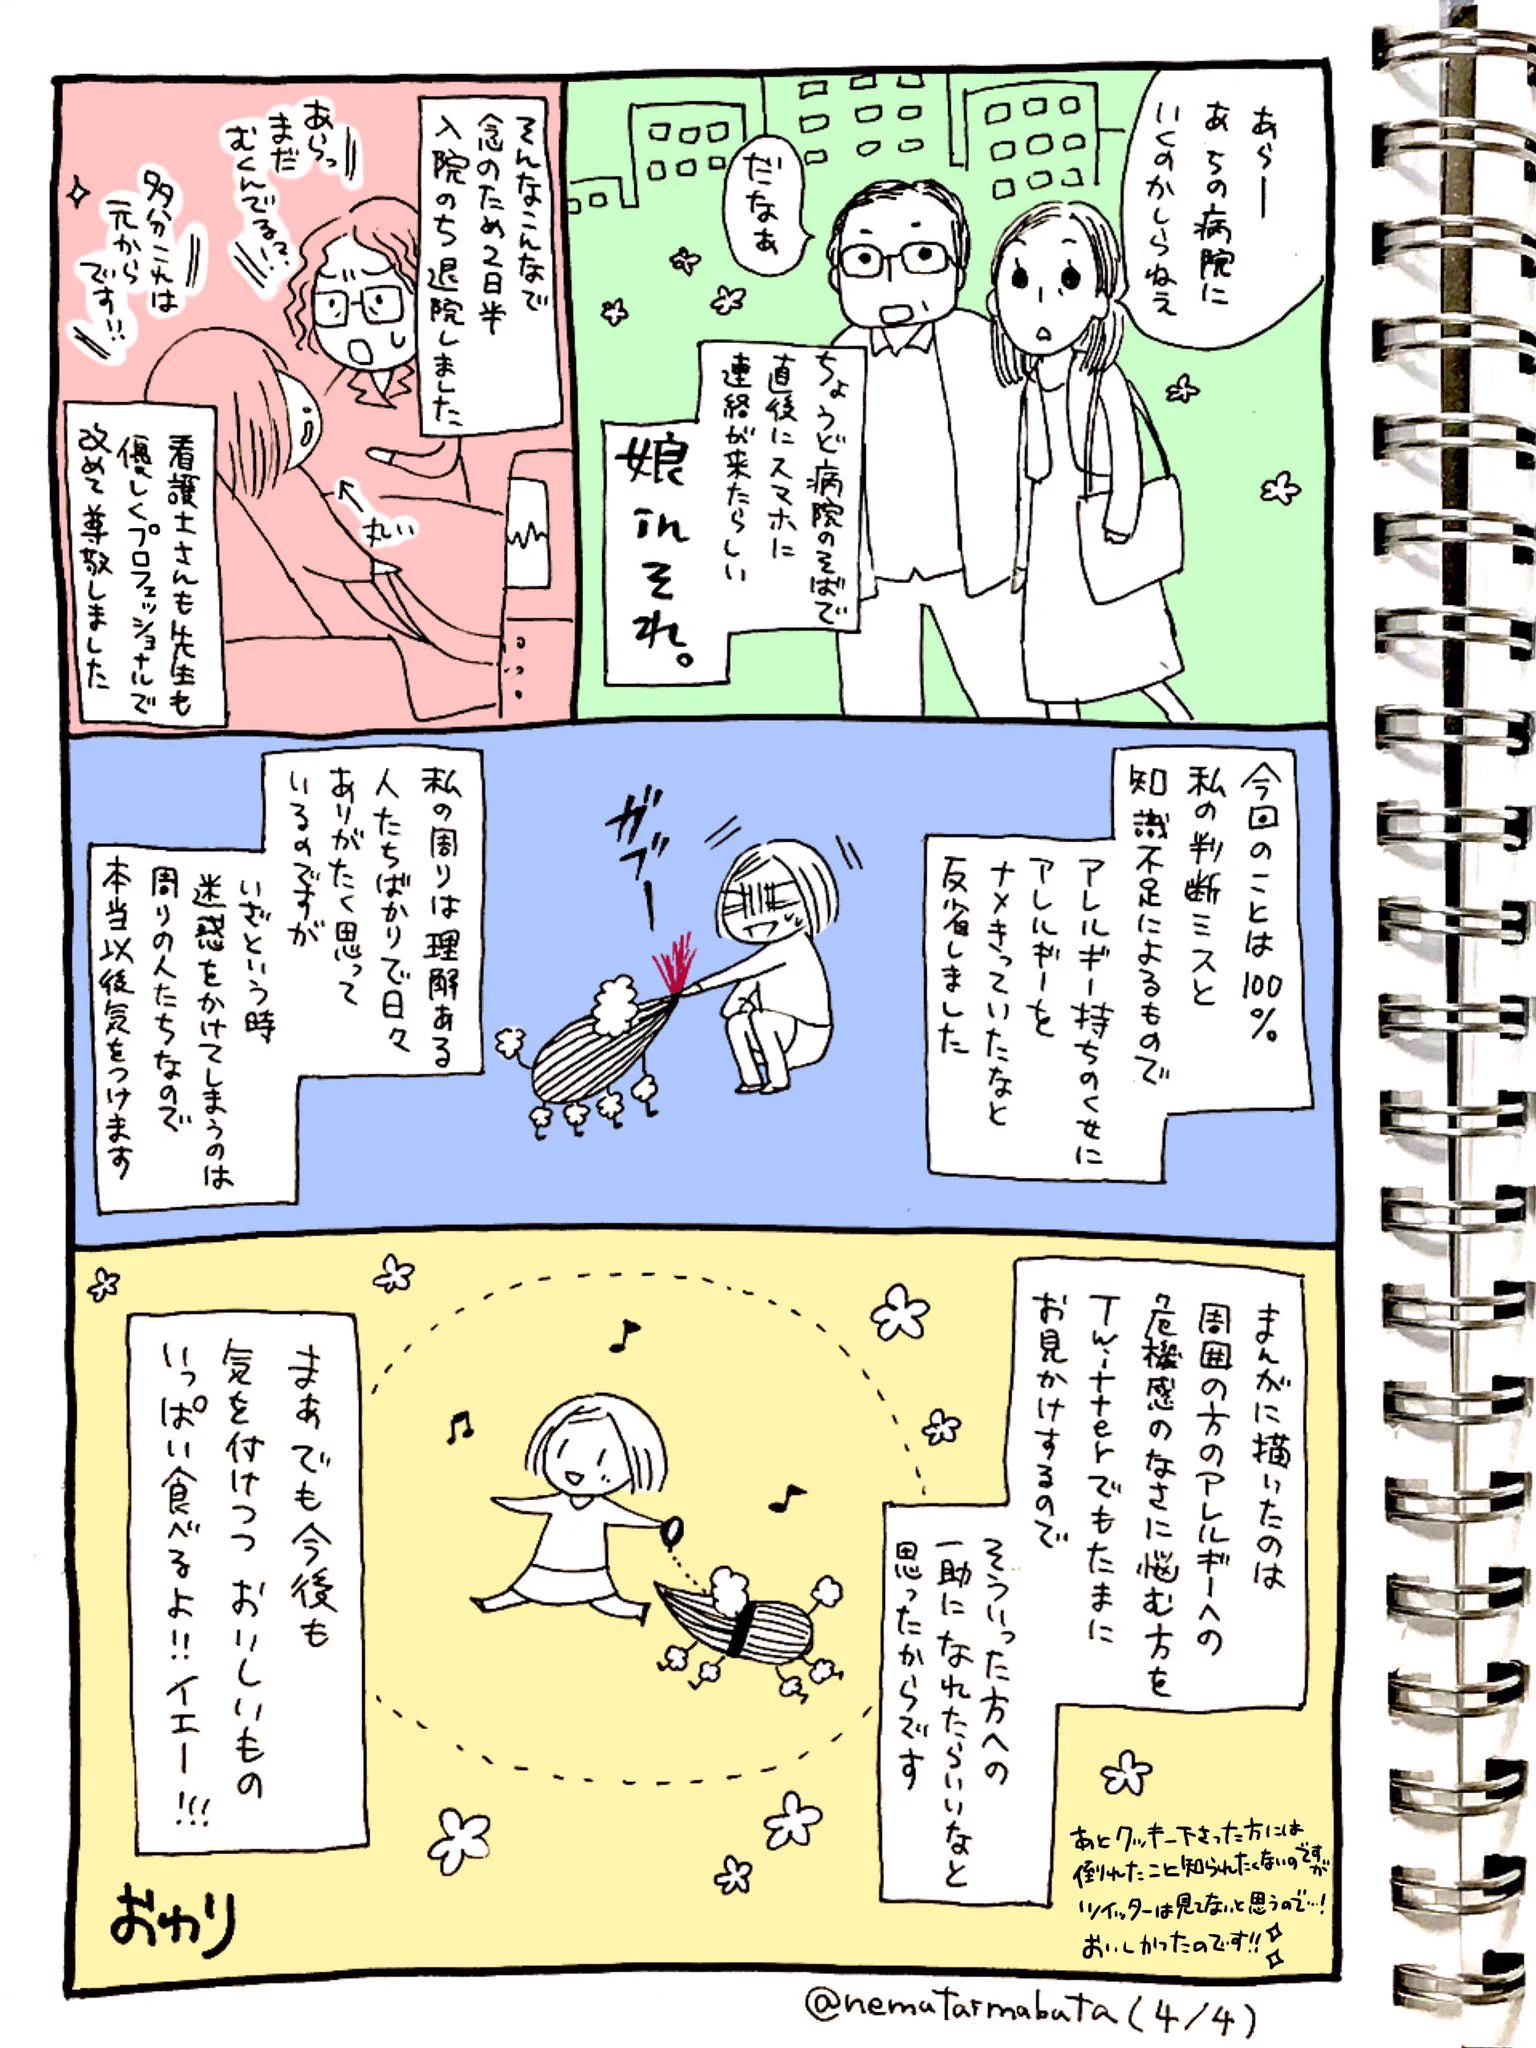 あらー
あちの病院に
いくのかしらねえ
だなぁ
ちょうど病院のそばで
直後にスマホに
連絡が来たらしい
娘inそれ。
そんなこんなで
念のため2日半
入院のち退院しました
あらっ
まだ
むくんでるっ!
多分これは
元から
です!!
丸い
看護士さんも先生も
優しくプロフェッショナルで
改めて尊敬しました
今回のことは100%
私の判断ミスと
知識不足によるもので
アレルギー持ちのくせに
アレルギーを
ナメきっていたなと
反省しました
ガブー
私の周りは理解ある
人たちばかりで日々
ありがたく思って
いるのですが
いざという時
迷惑をかけてしまうのは
周りの人たちなので
本当以後気をつけます
まんがに描いたのは
周囲の方のアレルギーへの
危機感のなさに悩む方を
Twitterでもたまに
お見かけするので
そういった方への
一助になれたらいいなと
思ったからです
まぁでも今後も
気を付けつつ おいしいもの
いっぱい食べるよ!!イエー!!!
あとクッキー下さった方には
倒れたこと知られたくないのですが
ツイッターは見てないと思うので…!
おいしかったのです!!
おわり
@nemutaimabuta(4/4)